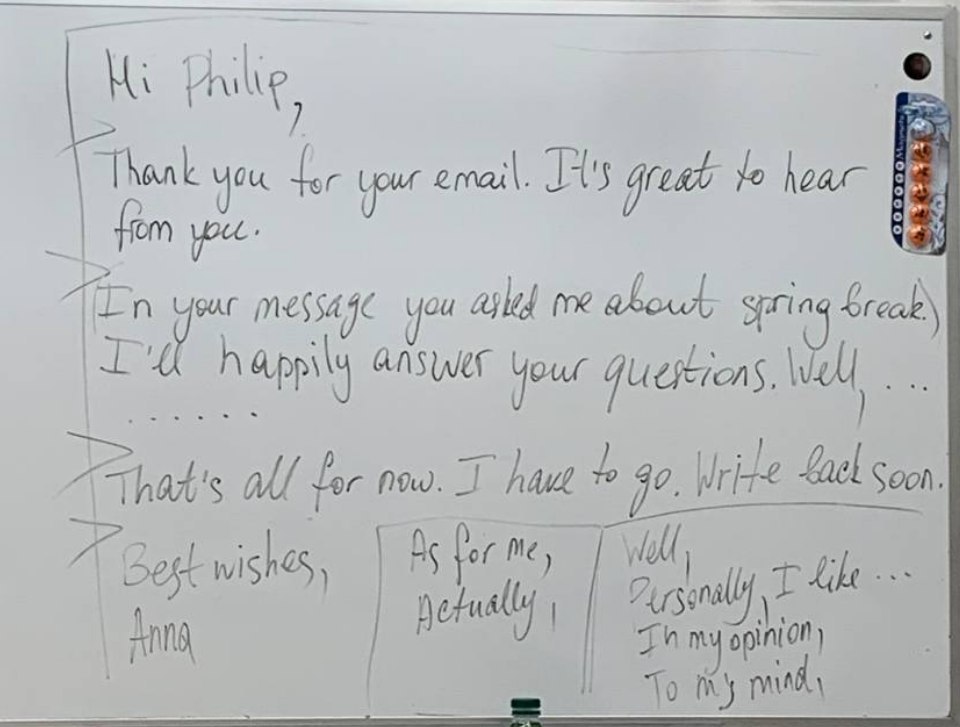 Hi Philip,
Thank you for your email. It's great to hear
from you.
(In your message you asked me about spring break.)
I'll happily answer your questions. Well, ....
......
That's all for now. I have to go. Write back soon.
Best wishes,
Anna
As for me,
Actually,
Well,
Personally, I like ...
In my opinion,
To my mind,